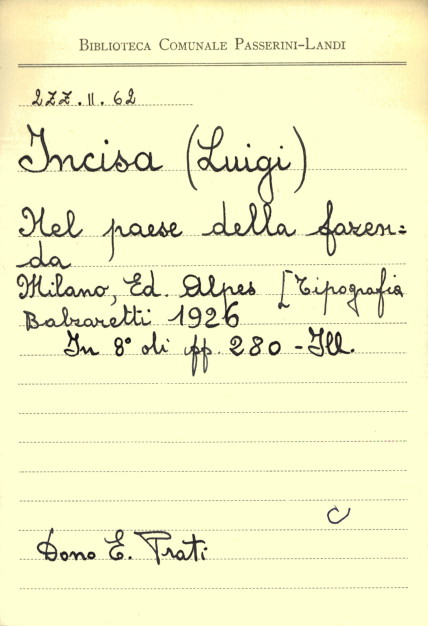 BIBLIOTECA COMUNALE PASSERINI-LANDI
2ZZ.II.62
Incisa (Luigi)
Nel paese della fazen=
da
Milano, Ed. Alpes [Tipografia
Balzaretti 1926
In 8° di pp. 280 - Ill.
C
Dono E. Prati